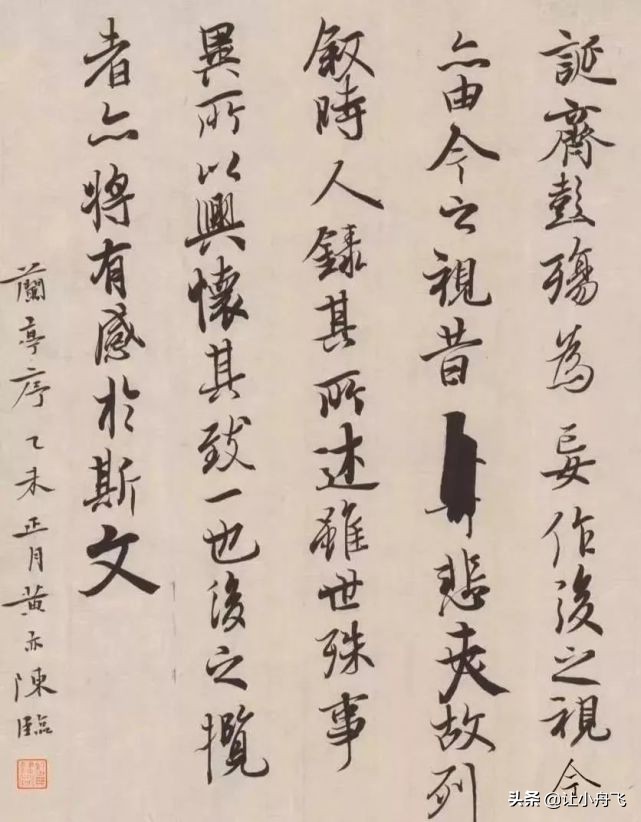 誕齊彭殤為妄作後之視今
亦由今之視昔悲夫故列
叙時人錄其所述雖世殊事
異所以興懷其致一也後之攬
者亦將有感於斯文
蘭亭序乙未正月黄亦陳臨
头条 @让小舟飞